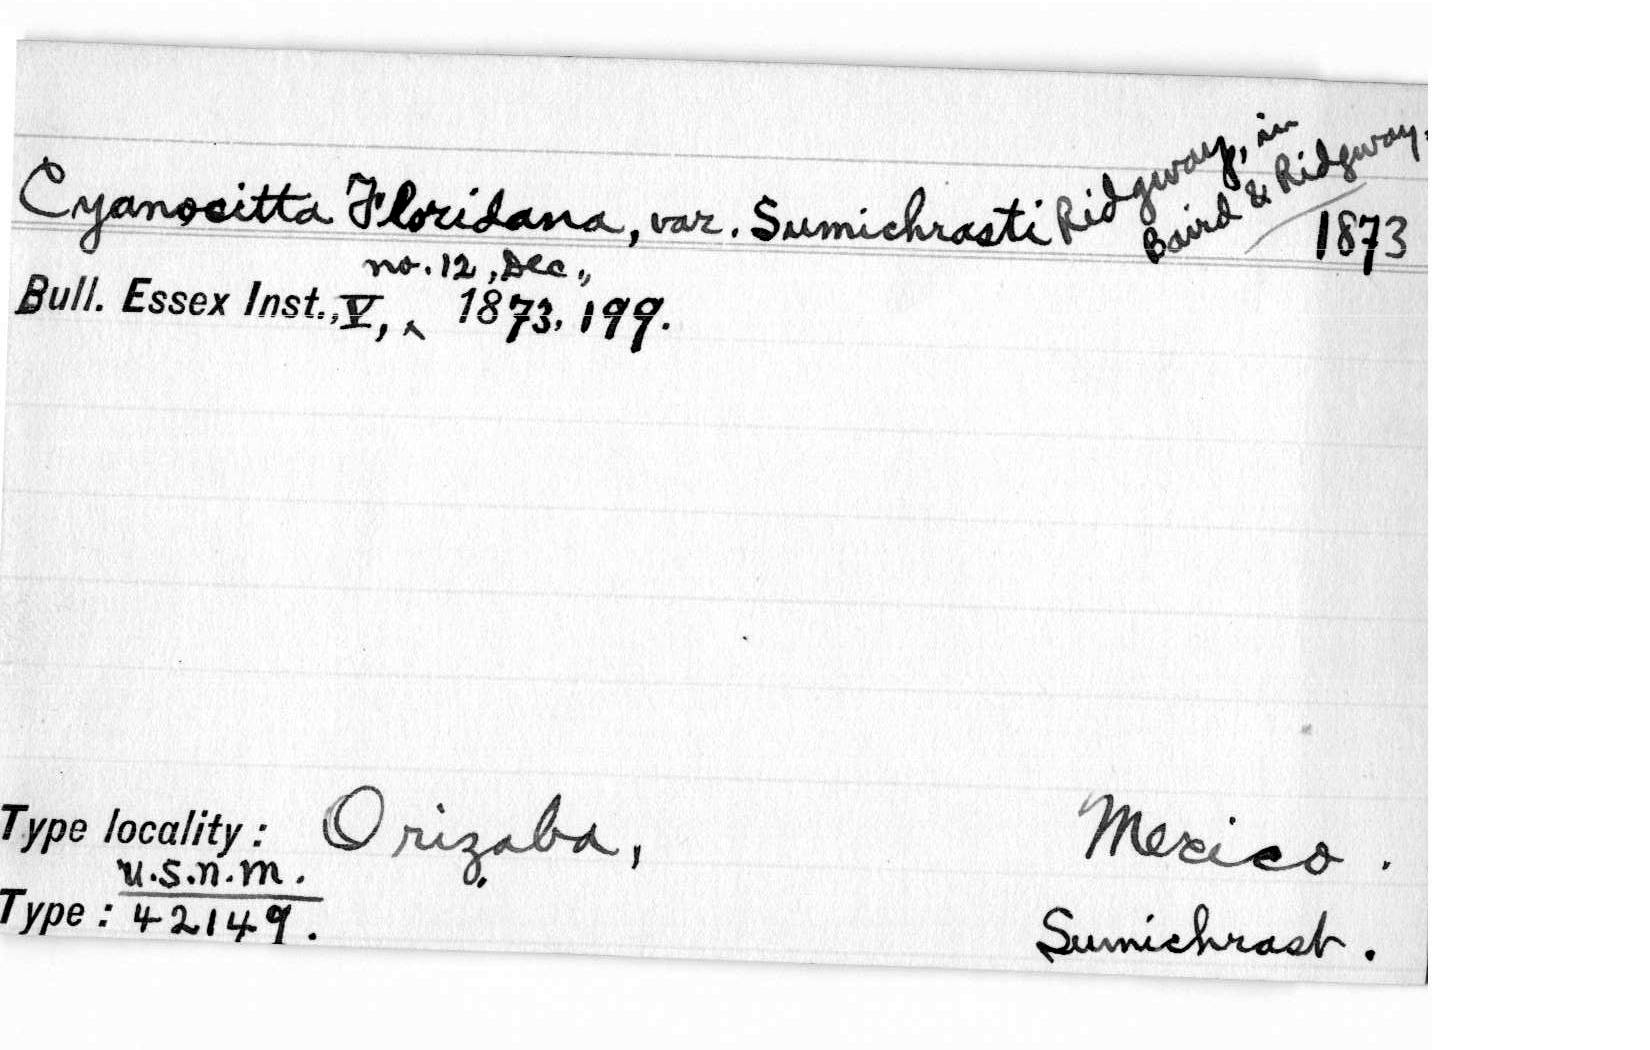 Cyanocitta Floridana, var. Sumichrasti Ridgway, in Baird & Ridgway. 1873
Bull. Essex Inst., V, no. 12, Dec., 1873, 199.
Type locality: Orizaba, Mexico.
Type: U.S.N.M. 42149. Sumichrast.